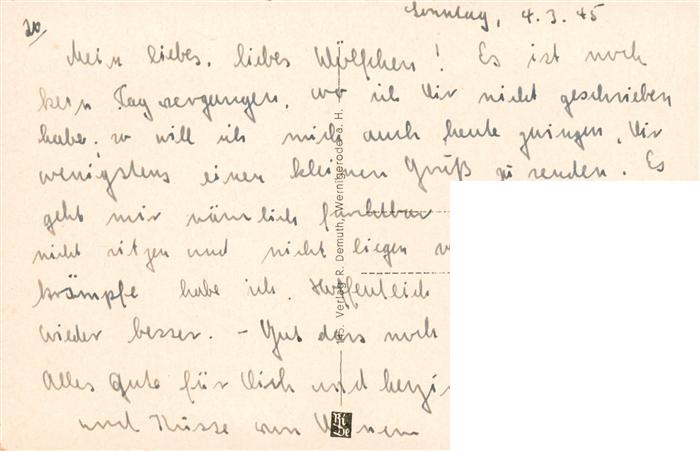 Sonntag, 4.3.45
20/
Mein liebes, liebes Wölfchen! Es ist noch
kein Tag vergangen, wo ich Dir nicht geschrieben
habe. so will ich mich auch heute zwingen, Dir
wenigstens einen kleinen Gruß zu senden. Es
geht mir nämlich furchtbar
nicht sitzen und nicht liegen
krämpfe habe ich. Hoffentlich
wieder besser. – Gut dass noch
Alles Gute für Dich und
und Küsse von Deinem
Verlag R. Demuth, Wernigerode a. H.